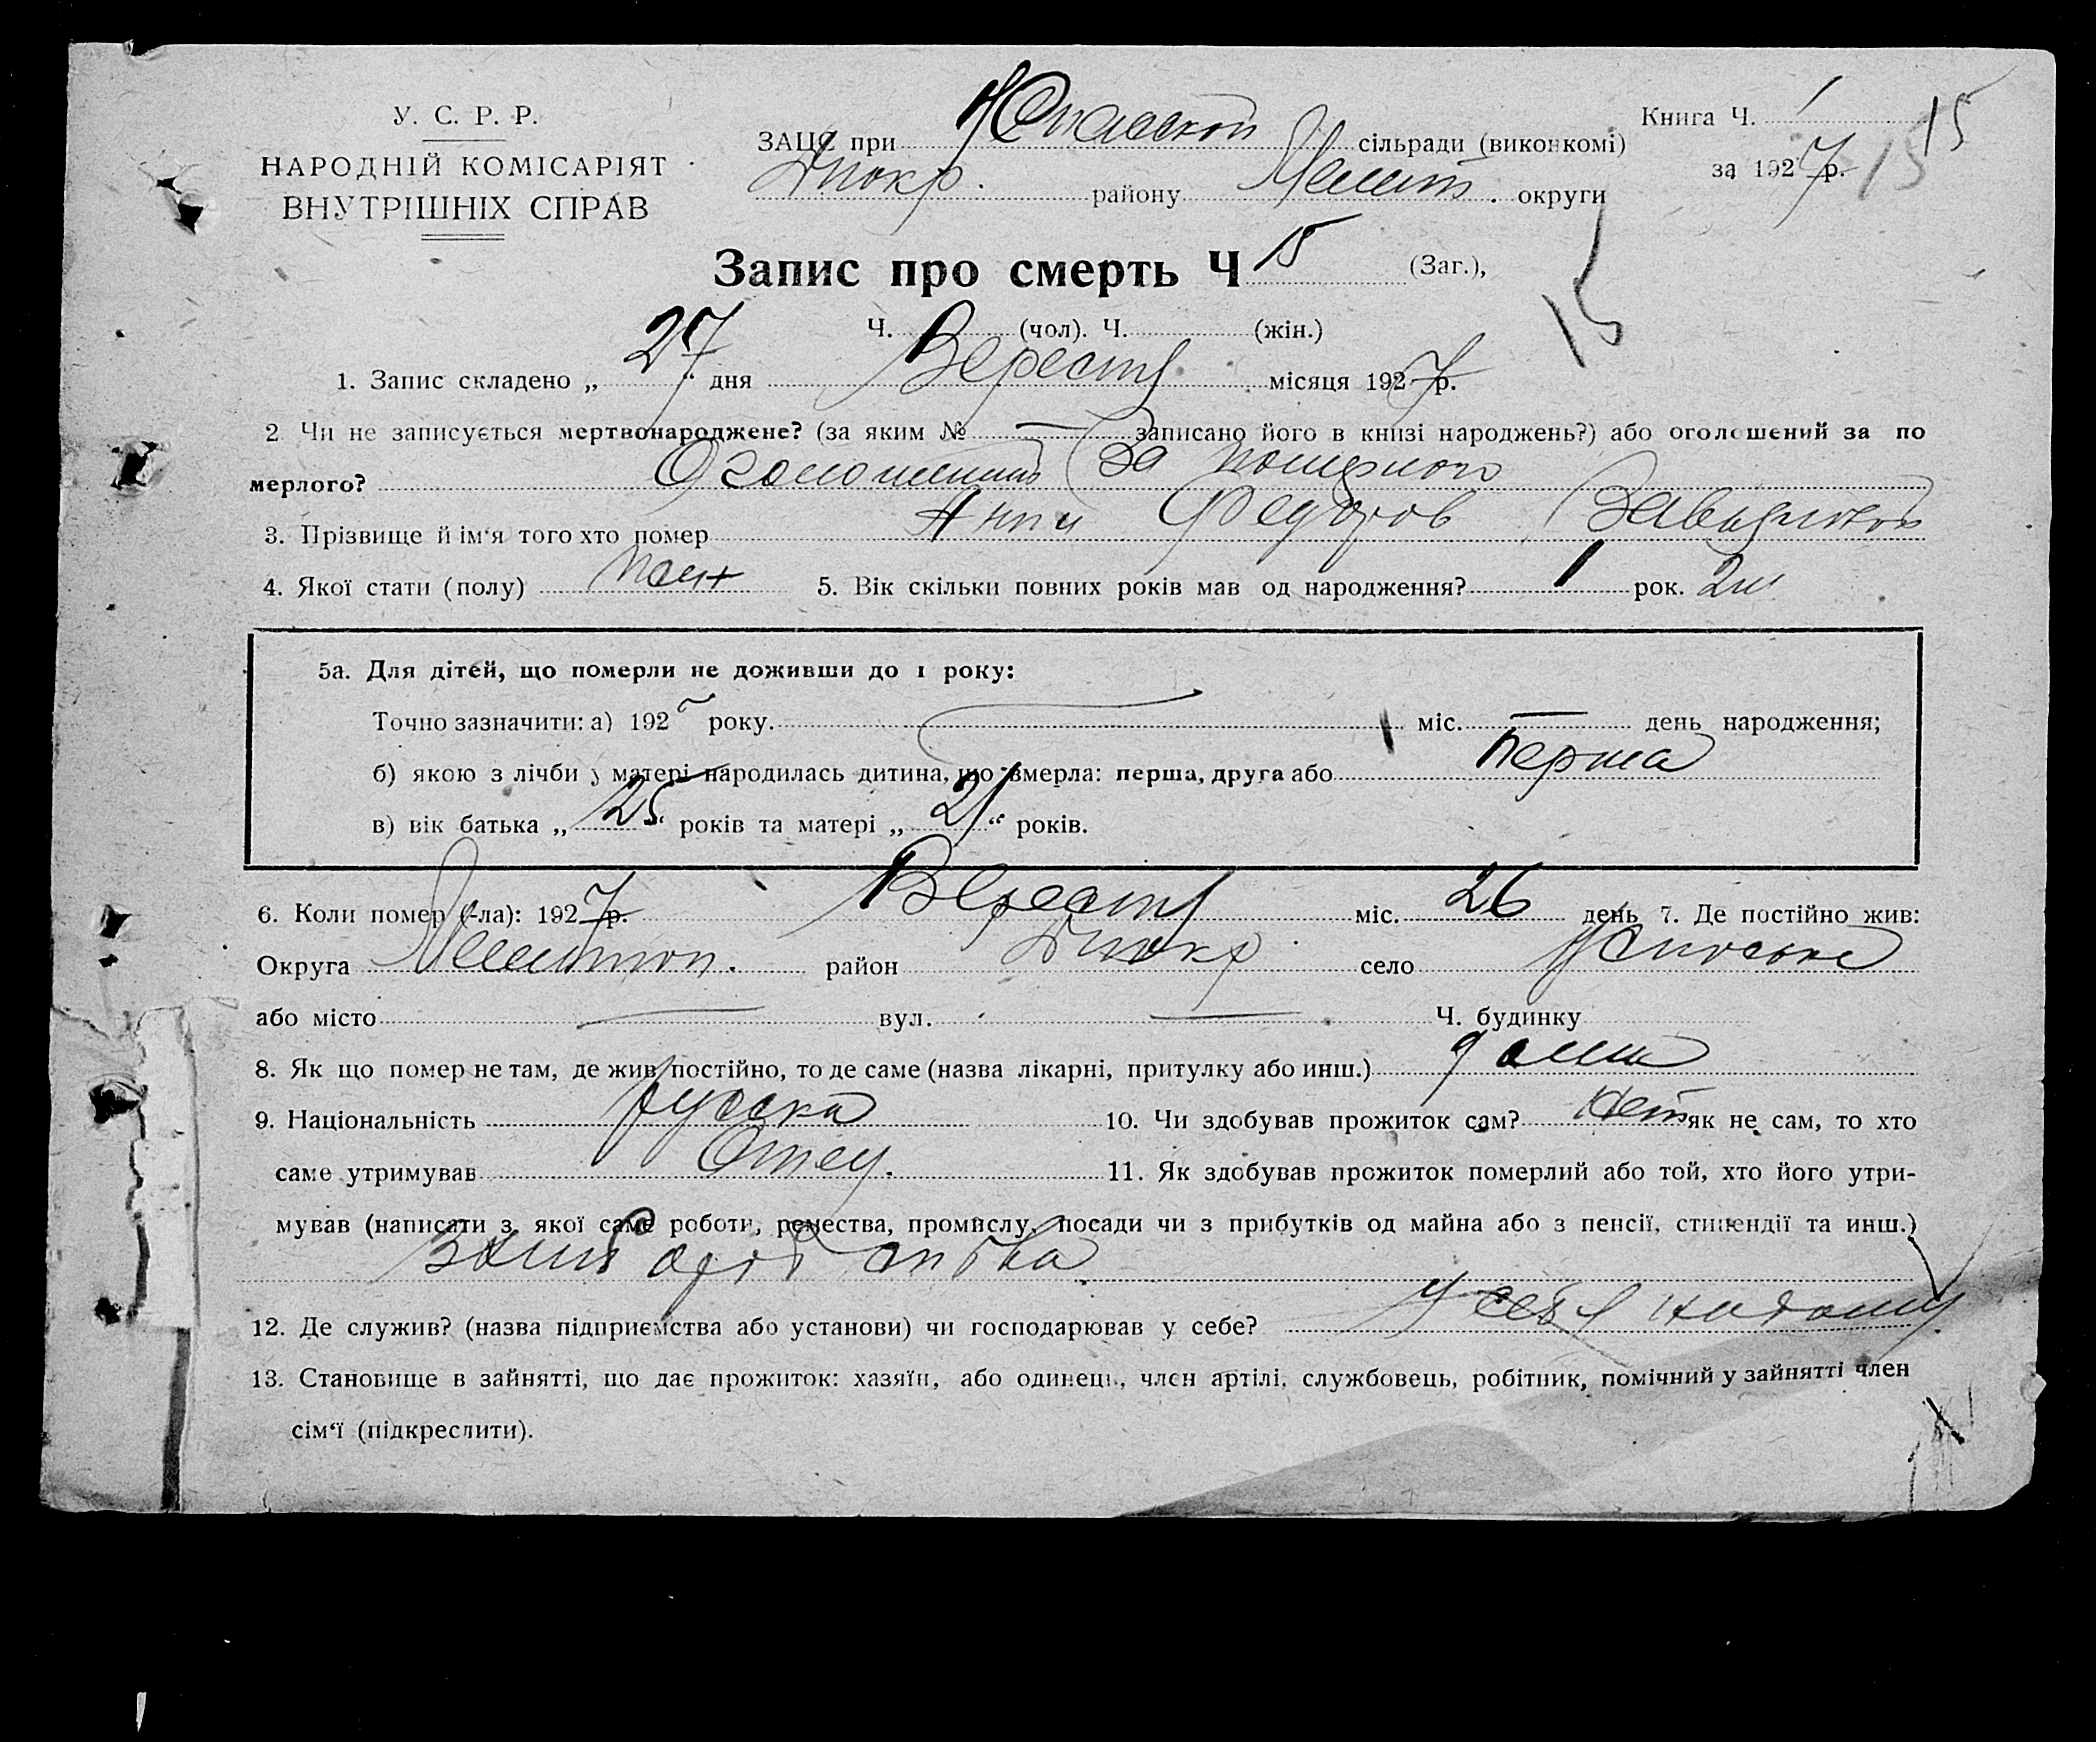 У. С. Р. Р.
НАРОДНІЙ КОМІСАРІЯТ
ВНУТРІШНІХ СПРАВ
ЗАЦС при сільради (виконкомі)
району Мелит. округи
Книга Ч. 1 15
за 1927 р. 15
Запис про смерть Ч 15 (Заг.),
15
Ч. (чол). Ч. (жін.)
1. Запис складено „ 27 “ дня Верестя місяця 1927 р.
2 Чи не записується мертвонароджене? (за яким № — записано його в книзі народжень?) або оголошений за по
мерлого? за
3. Прізвище й ім‘я того хто помер Федоров
4. Якої стати (полу) 5. Вік скільки повних років мав од народження? 1 рок. 2м
5а. Для дітей, що померли не доживши до 1 року:
Точно зазначити: а) 192 року. — міс. — день народження;
б) якою з лічби у матері народилась дитина, що вмерла: перша, друга або перша
в) вік батька „ 25 “ років та матері „ 21 “ років.
6. Коли помер (-ла): 1927 р. Верестя міс. 26 день 7. Де постійно жив:
Округа район село
або місто — вул. — Ч. будинку
8. Як що помер не там, де жив постійно, то де саме (назва лікарні, притулку або инш.) дома
9. Національність русска 10. Чи здобував прожиток сам? Нет як не сам, то хто
саме утримував Отец. 11. Як здобував прожиток померлий або той, хто його утри-
мував (написати з якої саме роботи, ремества, промислу, посади чи з прибутків од майна або з пенсії, стипендії та инш.)
12. Де служив? (назва підприємства або установи) чи господарював у себе? У себя на дому
13. Становище в зайнятті, що дає прожиток: хазяїн, або одинець, член артілі, службовець, робітник, помічний у зайнятті член
сім‘ї (підкреслити).